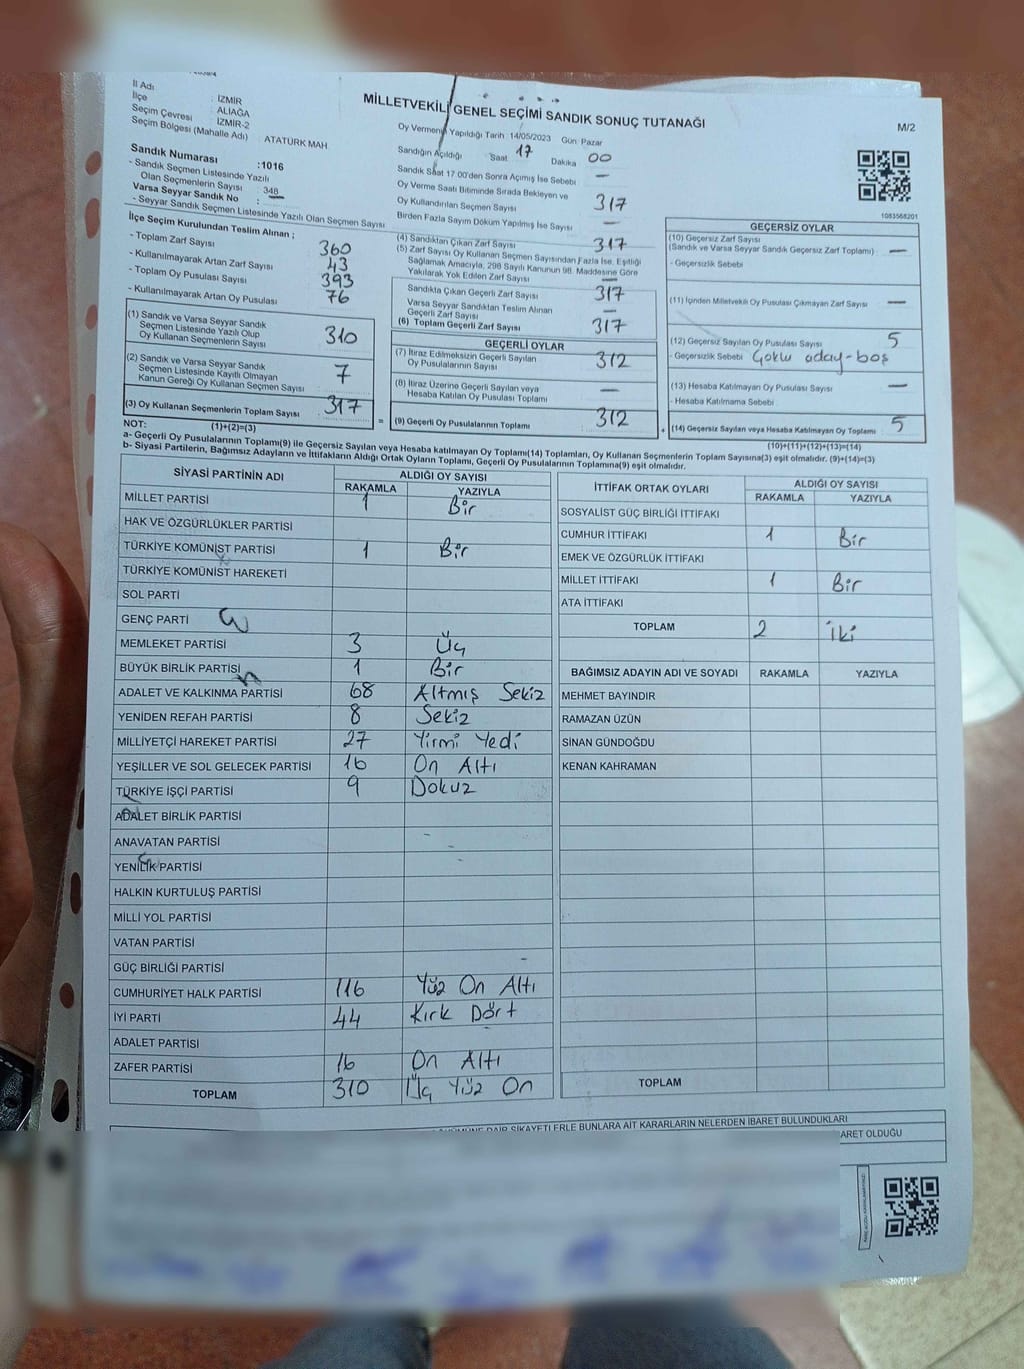 MİLLETVEKİLİ GENEL SEÇİMİ SANDIK SONUÇ TUTANAĞI
M/2
İl Adı : İZMİR
İlçe : ALİAĞA
Seçim Çevresi : İZMİR-2
Seçim Bölgesi (Mahalle Adı) : ATATÜRK MAH
Sandık Numarası :1016
- Sandık Seçmen Listesinde Yazılı
Olan Seçmenlerin Sayısı : 348
Varsa Seyyar Sandık No : —
- Seyyar Sandık Seçmen Listesinde Yazılı Olan Seçmen Sayısı
Oy Vermenin Yapıldığı Tarih 14/05/2023 Gün Pazar
Sandığın Açıldığı Saat 17 Dakika 00
Sandık Saat 17.00'den Sonra Açımış İse Sebebi —
Oy Verme Saati Bitiminde Sırada Bekleyen ve
Oy Kullandırılan Seçmen Sayısı 317
Birden Fazla Sayım Döküm Yapılmış İse Sayısı —
1083568201
İlçe Seçim Kurulundan Teslim Alınan ;
- Toplam Zarf Sayısı 360
- Kullanılmayarak Artan Zarf Sayısı 43
- Toplam Oy Pusulası Sayısı 393
- Kullanılmayarak Artan Oy Pusulası 76
(1) Sandık ve Varsa Seyyar Sandık
Seçmen Listesinde Yazılı Olup
Oy Kullanan Seçmenlerin Sayısı 310
(2) Sandık ve Varsa Seyyar Sandık
Seçmen Listesinde Kayıtlı Olmayan
Kanun Gereği Oy Kullanan Seçmen Sayısı 7
(3) Oy Kullanan Seçmenlerin Toplam Sayısı 317
(1)+(2)=(3)
(4) Sandıktan Çıkan Zarf Sayısı 317
(5) Zarf Sayısı Oy Kullanan Seçmen Sayısından Fazla İse, Eşitliği
Sağlamak Amacıyla, 298 Sayılı Kanunun 98. Maddesine Göre
Yakılarak Yok Edilen Zarf Sayısı —
Sandıkta Çıkan Geçerli Zarf Sayısı 317
Varsa Seyyar Sandıktan Teslim Alınan
Geçerli Zarf Sayısı —
(6) Toplam Geçerli Zarf Sayısı 317
GEÇERLİ OYLAR
(7) İtiraz Edilmeksizin Geçerli Sayılan
Oy Pusulalarının Sayısı 312
(8) İtiraz Üzerine Geçerli Sayılan veya
Hesaba Katılan Oy Pusulası Toplamı —
= (9) Geçerli Oy Pusulalarının Toplamı 312
GEÇERSİZ OYLAR
(10) Geçersiz Zarf Sayısı
(Sandık ve Varsa Seyyar Sandık Geçersiz Zarf Toplamı) : —
- Geçersizlik Sebebi
(11) İçinden Milletvekili Oy Pusulası Çıkmayan Zarf Sayısı —
(12) Geçersiz Sayılan Oy Pusulası Sayısı 5
- Geçersizlik Sebebi Çoklu aday-boş
(13) Hesaba Katılmayan Oy Pusulası Sayısı —
- Hesaba Katılmama Sebebi
+ (14) Geçersiz Sayılan veya Hesaba Katılmayan Oy Toplamı 5
(10)+(11)+(12)+(13)=(14)
NOT:
a- Geçerli Oy Pusulalarının Toplamı(9) ile Geçersiz Sayılan veya Hesaba katılmayan Oy Toplamı(14) Toplamları, Oy Kullanan Seçmenlerin Toplam Sayısına(3) eşit olmalıdır. (9)+(14)=(3)
b- Siyasi Partilerin, Bağımsız Adayların ve İttifakların Aldığı Ortak Oyların Toplamı, Geçerli Oy Pusulalarının Toplamına(9) eşit olmalıdır.
SİYASİ PARTİNİN ADI ALDIĞI OY SAYISI
RAKAMLA YAZIYLA
MİLLET PARTİSİ 1 Bir
HAK VE ÖZGÜRLÜKLER PARTİSİ
TÜRKİYE KOMÜNİST PARTİSİ 1 Bir
TÜRKİYE KOMÜNİST HAREKETİ
SOL PARTİ
GENÇ PARTİ
MEMLEKET PARTİSİ 3 Üç
BÜYÜK BİRLİK PARTİSİ 1 Bir
ADALET VE KALKINMA PARTİSİ 68 Altmış Sekiz
YENİDEN REFAH PARTİSİ 8 Sekiz
MİLLİYETÇİ HAREKET PARTİSİ 27 Yirmi Yedi
YEŞİLLER VE SOL GELECEK PARTİSİ 16 On Altı
TÜRKİYE İŞÇİ PARTİSİ 9 Dokuz
ADALET BİRLİK PARTİSİ
ANAVATAN PARTİSİ
YENİLİK PARTİSİ
HALKIN KURTULUŞ PARTİSİ
MİLLİ YOL PARTİSİ
VATAN PARTİSİ
GÜÇ BİRLİĞİ PARTİSİ
CUMHURİYET HALK PARTİSİ 116 Yüz On Altı
İYİ PARTİ 44 Kırk Dört
ADALET PARTİSİ
ZAFER PARTİSİ 16 On Altı
TOPLAM 310 Üç Yüz On
İTTİFAK ORTAK OYLARI ALDIĞI OY SAYISI
RAKAMLA YAZIYLA
SOSYALİST GÜÇ BİRLİĞİ İTTİFAKI
CUMHUR İTTİFAKI 1 Bir
EMEK VE ÖZGÜRLÜK İTTİFAKI
MİLLET İTTİFAKI 1 Bir
ATA İTTİFAKI
TOPLAM 2 İki
BAĞIMSIZ ADAYIN ADI VE SOYADI RAKAMLA YAZIYLA
MEHMET BAYINDIR
RAMAZAN ÜZÜN
SİNAN GÜNDOĞDU
KENAN KAHRAMAN
TOPLAM
DAİR ŞİKAYETLERLE BUNLARA AİT KARARLARIN NELERDEN İBARET BULUNDUKLARI
OLDUĞU